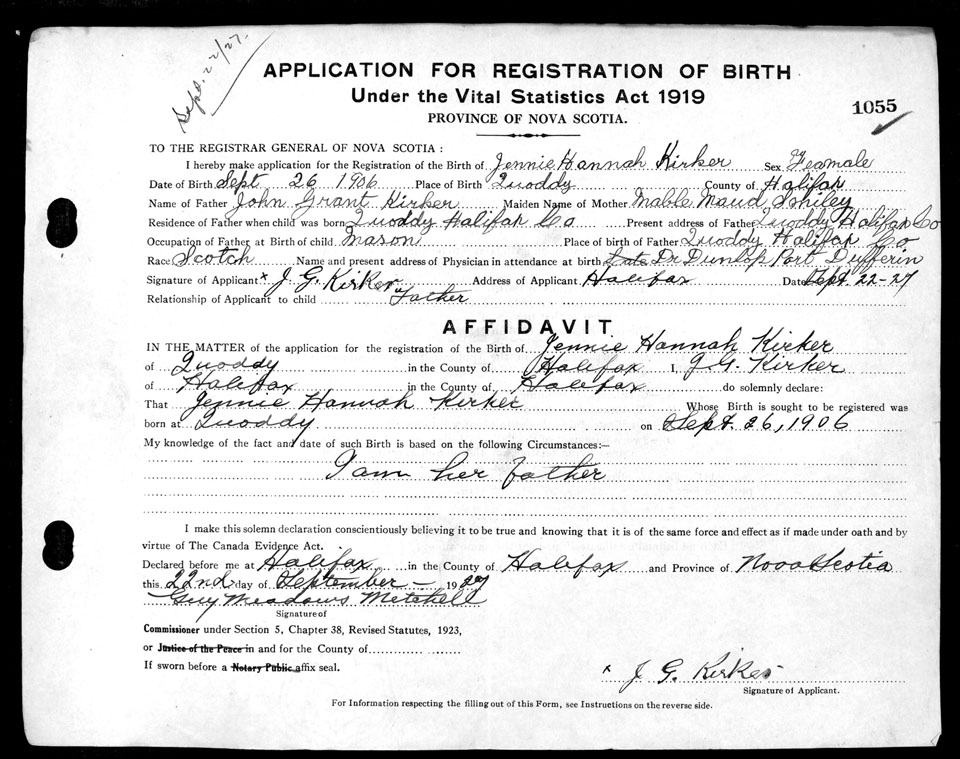 Sept. 22/27.
APPLICATION FOR REGISTRATION OF BIRTH
Under the Vital Statistics Act 1919
PROVINCE OF NOVA SCOTIA.
1055
TO THE REGISTRAR GENERAL OF NOVA SCOTIA :
I hereby make application for the Registration of the Birth of Jennie Hannah Kirker Sex Feamale
Date of Birth Sept 26 1906 Place of Birth Quoddy County of Halifax
Name of Father John Grant Kirker Maiden Name of Mother Mable Maud Smiley
Residence of Father when child was born Quoddy Halifax Co Present address of Father Quoddy Halifax Co
Occupation of Father at Birth of child Mason Place of birth of Father Quoddy Halifax Co.
Race Scotch Name and present address of Physician in attendance at birth Late Dr Dunlop Port Dufferin
Signature of Applicant x J. G. Kirker Address of Applicant Halifax Date Sept. 22-27
Relationship of Applicant to child Father
AFFIDAVIT
IN THE MATTER of the application for the registration of the Birth of Jennie Hannah Kirker
of Quoddy in the County of Halifax I, J.G. Kirker
of Halifax in the County of Halifax do solemnly declare:
That Jennie Hannah Kirker Whose Birth is sought to be registered was
born at Quoddy on Sept. 26, 1906
My knowledge of the fact and date of such Birth is based on the following Circumstances:—
I am her father
I make this solemn declaration conscientiously believing it to be true and knowing that it is of the same force and effect as if made under oath and by
virtue of The Canada Evidence Act.
Declared before me at Halifax in the County of Halifax and Province of Nova Scotia
this 22nd day of September – 1927
Guy Meadows Metchell
Signature of
Commissioner under Section 5, Chapter 38, Revised Statutes, 1923,
or Justice of the Peace in and for the County of
If sworn before a Notary Public affix seal.
x J. G. Kirker
Signature of Applicant.
For Information respecting the filling out of this Form, see Instructions on the reverse side.